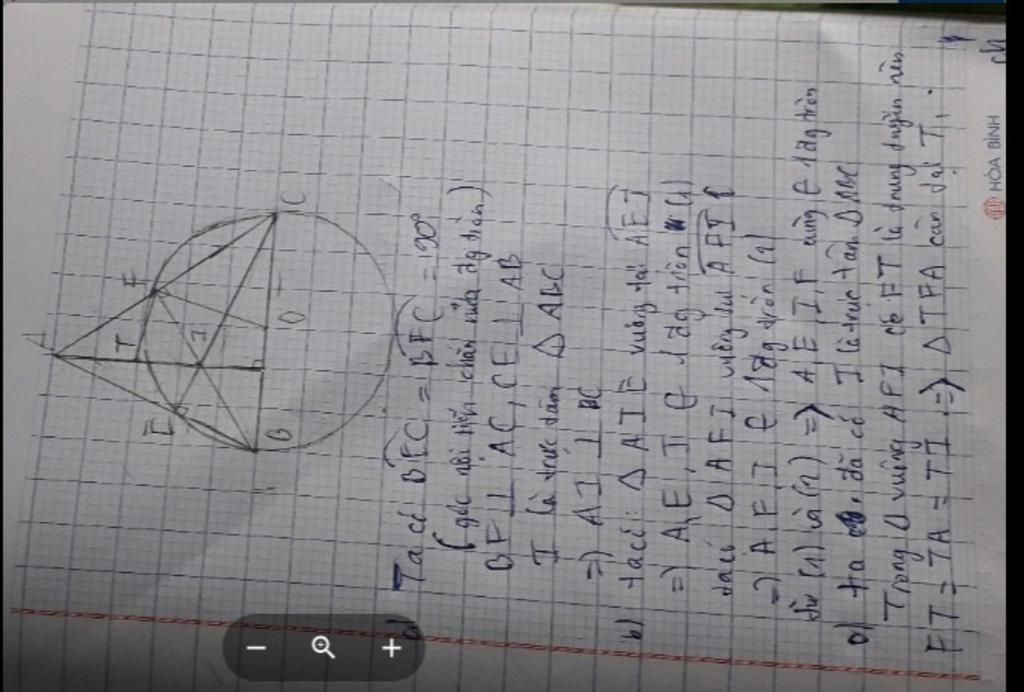 A
F
T
E
I
B
O
C
a) Ta có BEC = BFC = 90°
(góc nội tiếp chắn nửa đg tròn)
BF ⊥ AC, CE ⊥ AB
I là trực tâm Δ ABC
=) AI ⊥ BC
b) ta có: Δ AIE vuông tại AEI
=) A, E, I ∈ 1 đg tròn (1)
ta có Δ AFI vuông tại AFI
=) A F I ∈ 1 đg tròn (2)
từ (1) và (2) =) A E I F cùng ∈ 1 đg tròn
ta đã có I là trực tâm Δ ABC
Trong Δ vuông AFI có FT là trung tuyến nên
FT = TA = TI =) Δ TFA cân tại T.
HÒA BÌNH